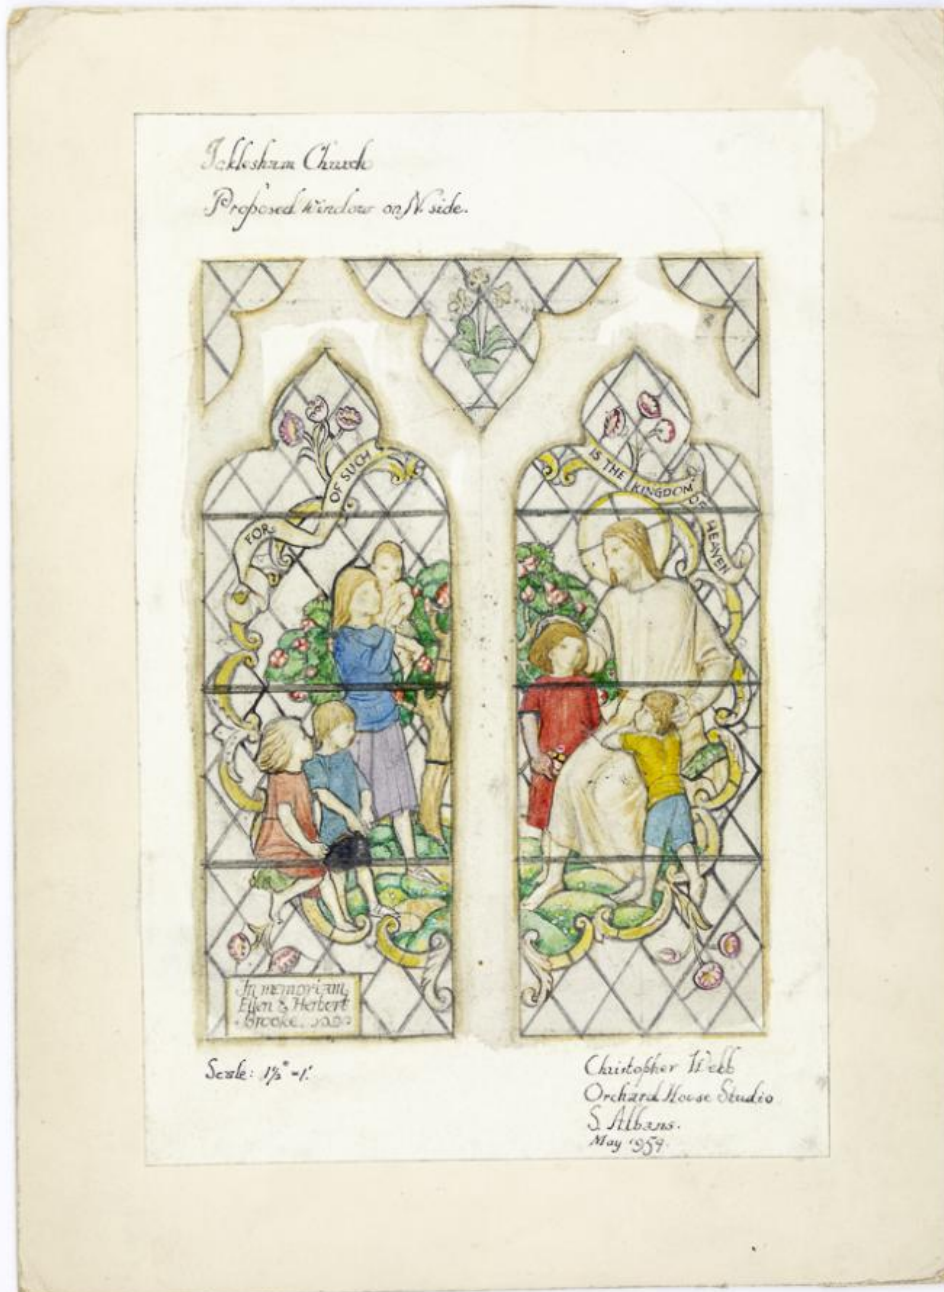 Icklesham Church
Proposed window on N. side.
FOR OF SUCH
IS THE KINGDOM OF HEAVEN
In memoriam
Ellen & Herbert
Brooke.
Scale: 1½" = 1'.
Christopher Webb
Orchard House Studio
S. Albans.
May 1959.